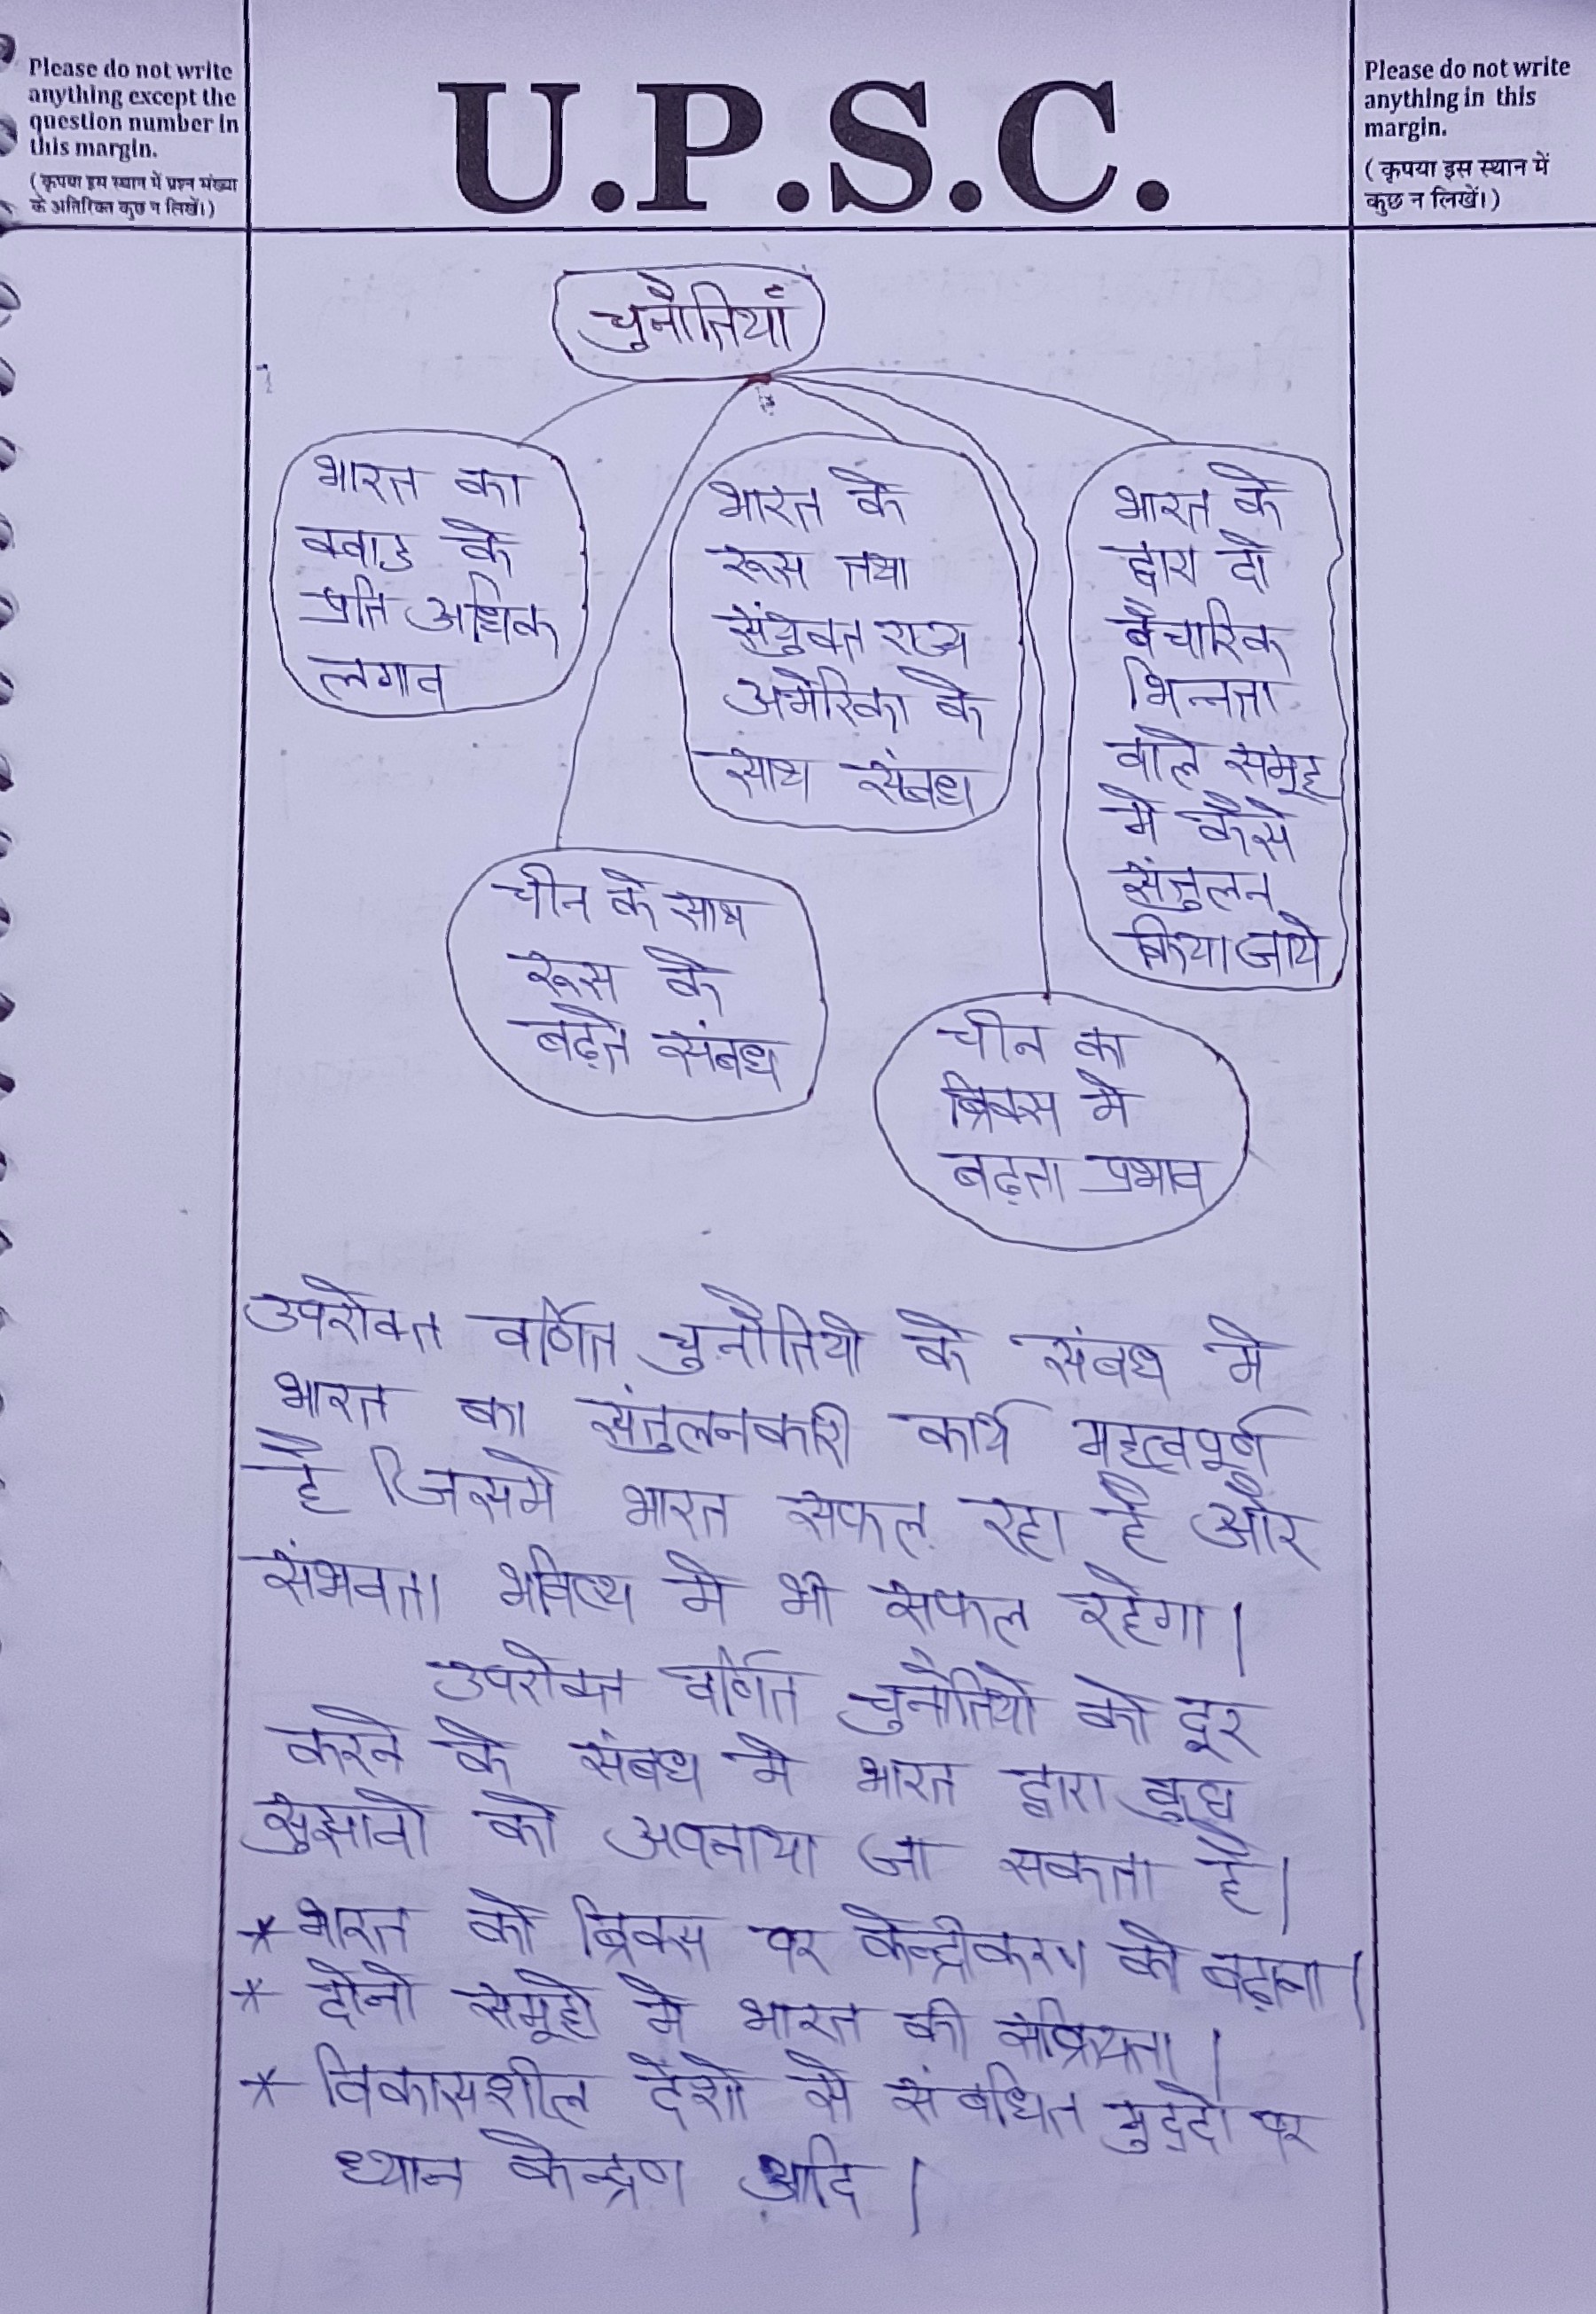 Please do not write
anything except the
question number in
this margin.
(कृपया इस स्थान में प्रश्न संख्या
के अतिरिक्त कुछ न लिखें।)
U.P.S.C.
Please do not write
anything in this
margin.
(कृपया इस स्थान में
कुछ न लिखें।)
चुनौतियाँ
भारत का
क्वाड के
प्रति अधिक
लगाव
भारत के
रूस तथा
संयुक्त राज्य
अमेरिका के
साथ संबंध
भारत के
द्वारा दो
वैचारिक
भिन्नता
वाले समूह
मे कैसे
संतुलन
किया जाये
चीन के साथ
रूस के
बढ़ते संबंध
चीन का
ब्रिक्स मे
बढ़ता प्रभाव
उपरोक्त वर्णित चुनौतियो के संबध मे
भारत का संतुलनकारी कार्य महत्वपूर्ण
है जिसमे भारत सफल रहा है और
संभवता भविष्य मे भी सफल रहेगा।
उपरोक्त वर्णित चुनौतियो को दूर
करने के संबध मे भारत द्वारा कुछ
सुझावो को अपनाया जा सकता है।
* भारत को ब्रिक्स पर केन्द्रीकरण को बढ़ाना।
* दोनो समूहो मे भारत की सक्रियता।
* विकासशील देशो से संबधित मुद्दो पर
ध्यान केन्द्रण आदि।